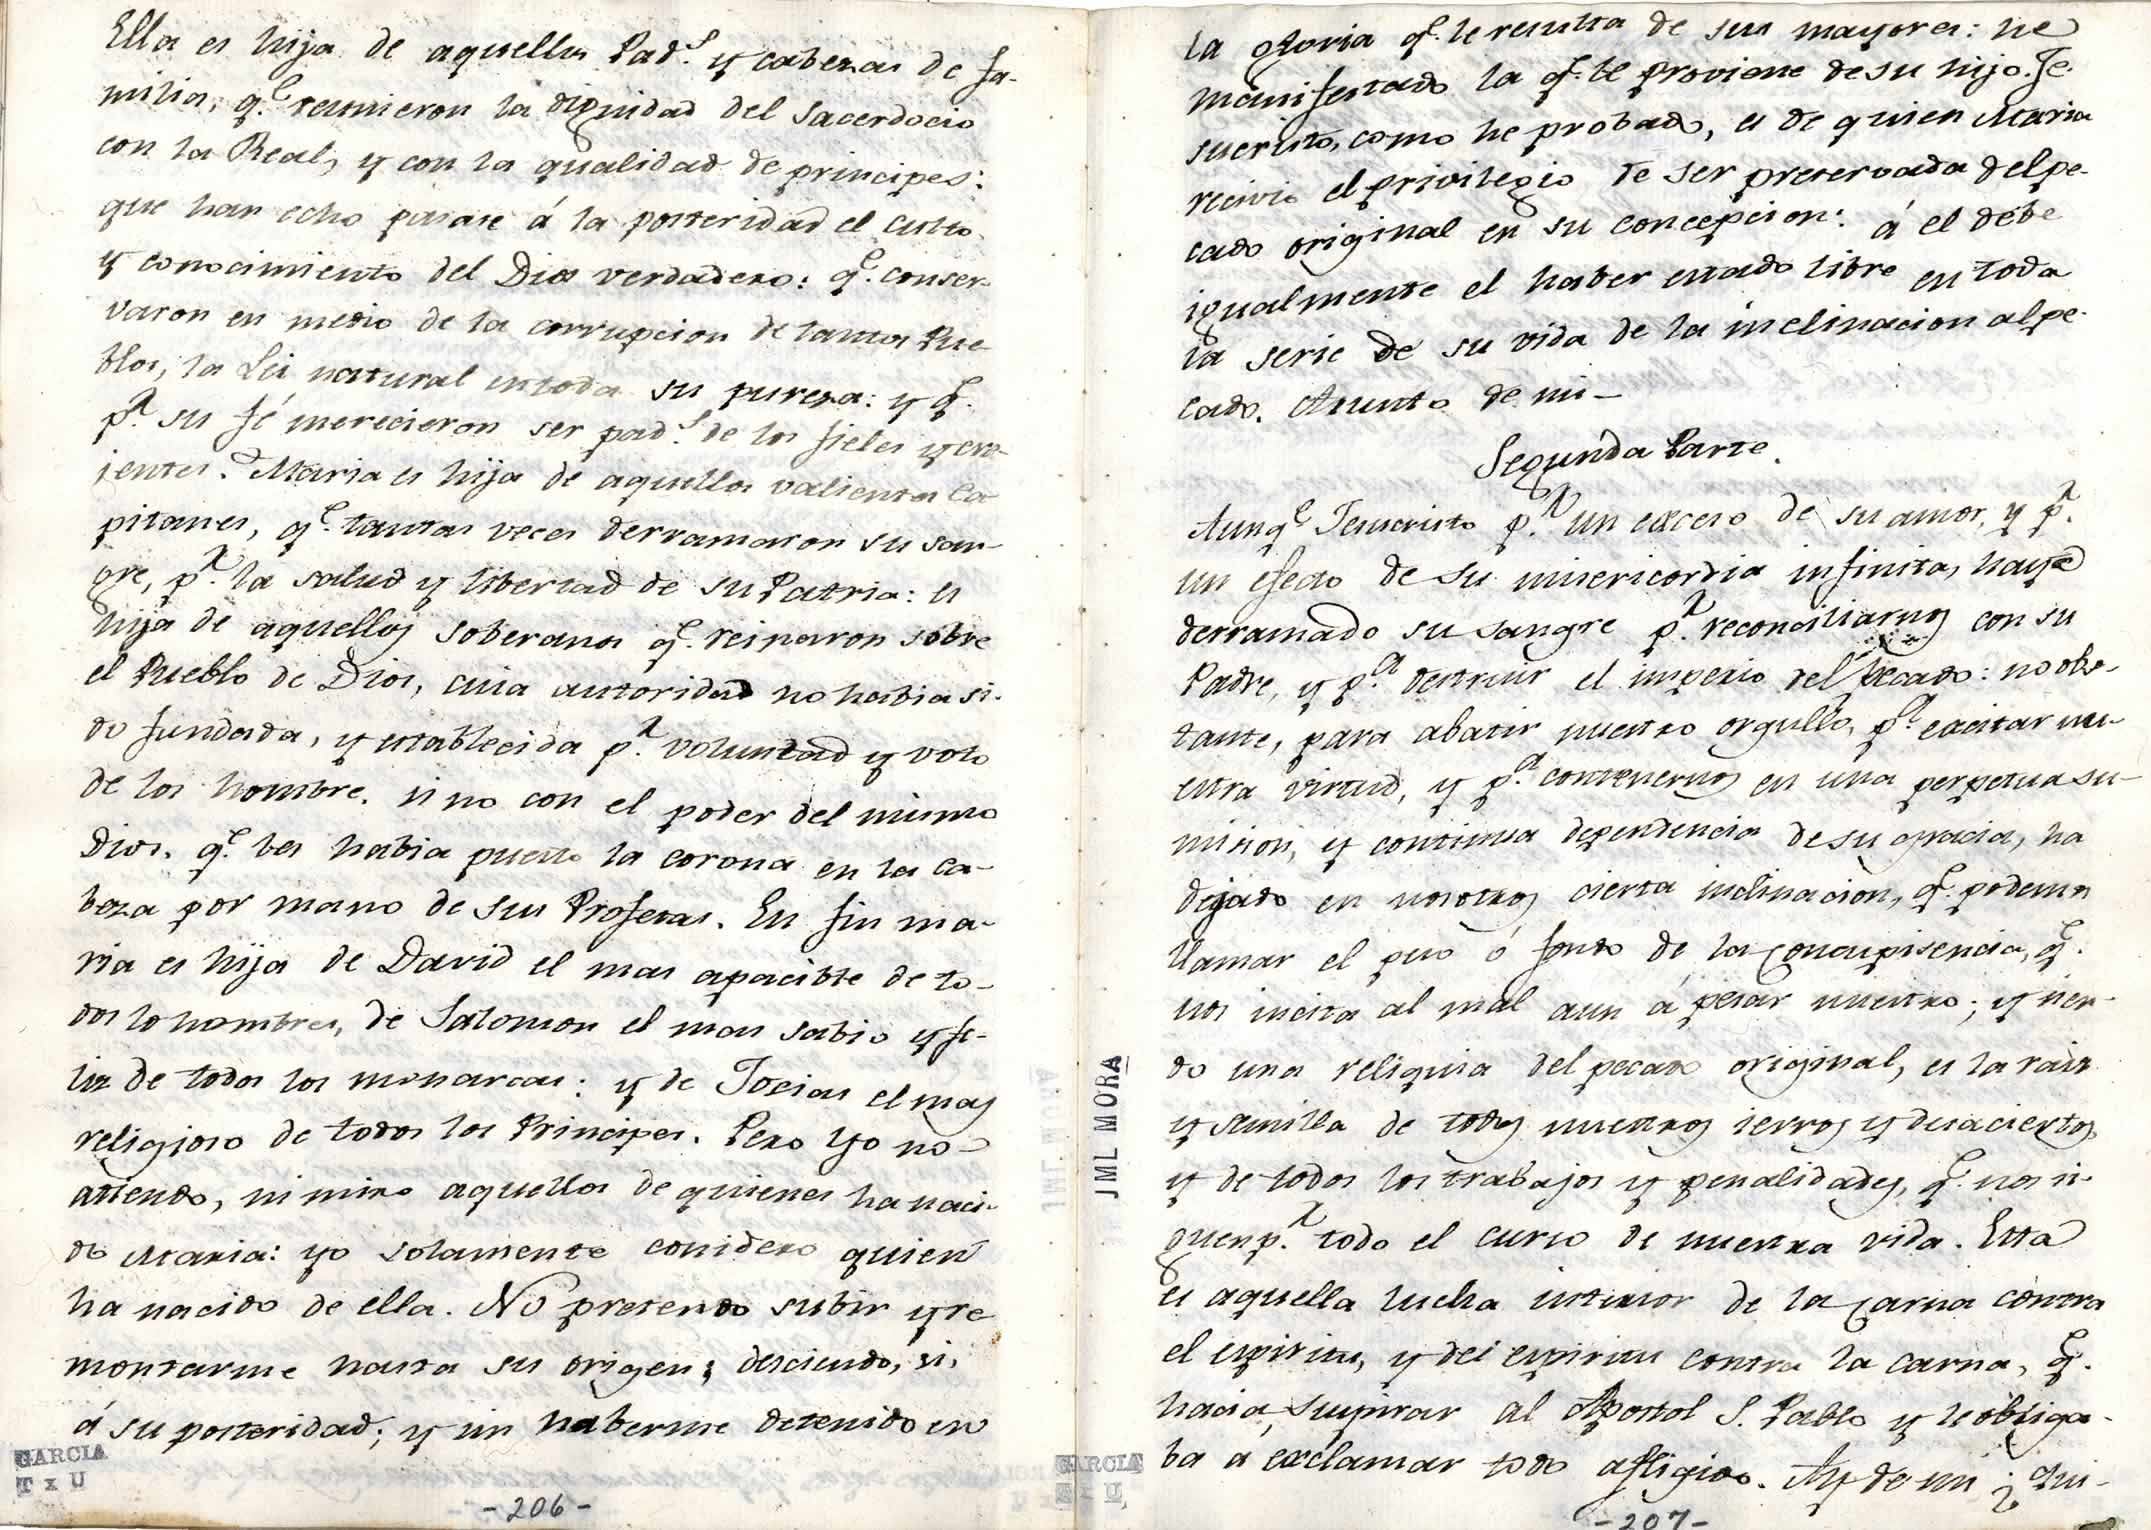 Ella es hija de aquellos Pad.s y cabezas de fa-
milia, q.e reunieron la dignidad del Sacerdocio
con la Real, y con la qualidad de principes:
que han echo pasase á la posteridad el culto
y conocimiento del Dios verdadero: q.e conser-
varon en medio de la corrupcion de tantos Pue
blos, la Lei natural en toda su pureza: y q.e
p.r su fé merecieron ser pad.s de los fieles y cre-
ientes. Maria es hija de aquellos valientes Ca
pitanes, q.e tantas veces derramaron su san-
gre, p.r la salud y libertad de su Patria: es
hija de aquellos soberanos q.e reinaron sobre
el Pueblo de Dios, cuia autoridad no habia si-
do fundada, y establecida p.r voluntad y voto
de los hombre. sino con el poder del mismo
Dios. q.e les habia puesto la corona en la ca-
beza por mano de sus Profetas. En fin ma-
ria es hija de David el mas apacible de to-
dos lo hombres, de Salomon el mas sabio y fe-
liz de todos los monarcas: y de Josias el mas
religioso de todos los Principes. Pero yo no
atiendo, ni miro aquellos de quienes ha naci-
do Maria: yo solamente considero quien
ha nacido de ella. No pretendo subir y re
montarme hasta su origen; desciendo, si,
á su posteridad; y sin haberme detenido en
GARCIA
T x U
-206-
la gloria q.e le resulta de sus mayores: he
manifestado la q.e le proviene de su hijo. Je
sucristo, como he probado, es de quien Maria
recivio el privilegio de ser preservada del pe-
cado original en su concepcion: á el debe
igualmente el haber estado libre en toda
la serie de su vida de la inclinacion al pe-
cado. Asunto de mi-
Segunda Parte.
Aunq.e Jesucristo p.r un exceso de su amor, y p.r
un efecto de su misericordia infinita, haya
derramado su sangre p.a reconciliarnos con su
Padre, y p.a destruir el imperio del pecado: no obs-
tante, para abatir nuestro orgullo, p.a excitar nu-
estra virtud, y p.a contenernos en una perpetua su-
mision, y continua dependencia de su gracia, ha
dejado en nosotros cierta inclinacion, q.e podemos
llamar el peso ó fondo de la concupisencia, q.e
nos incita al mal aun á pesar nuestro; y sien-
do una reliquia del pecado original, es la raiz
y semilla de todos nuestros ierros y desaciertos,
y de todos los trabajos y penalidades, q.e nos si-
guen p.r todo el curso de nuestra vida. Esta
es aquella lucha interior de la carna contra
el espiritu, y del espiritu contra la carna, q.e
hacia suspirar al Apostol S. Pablo y le obliga-
ba a exclamar todo afligido. Ay de mi ¿ qui-
JML MORA
GARCIA
-207-